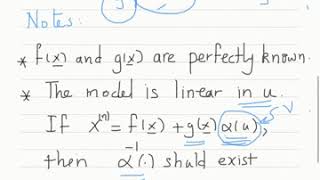 Notes:
* f(x) and g(x) are perfectly known.
* The model is linear in u.
If x⁽ⁿ⁾ = f(x) + g(x) α(u), V
then α⁻¹(.) should exist